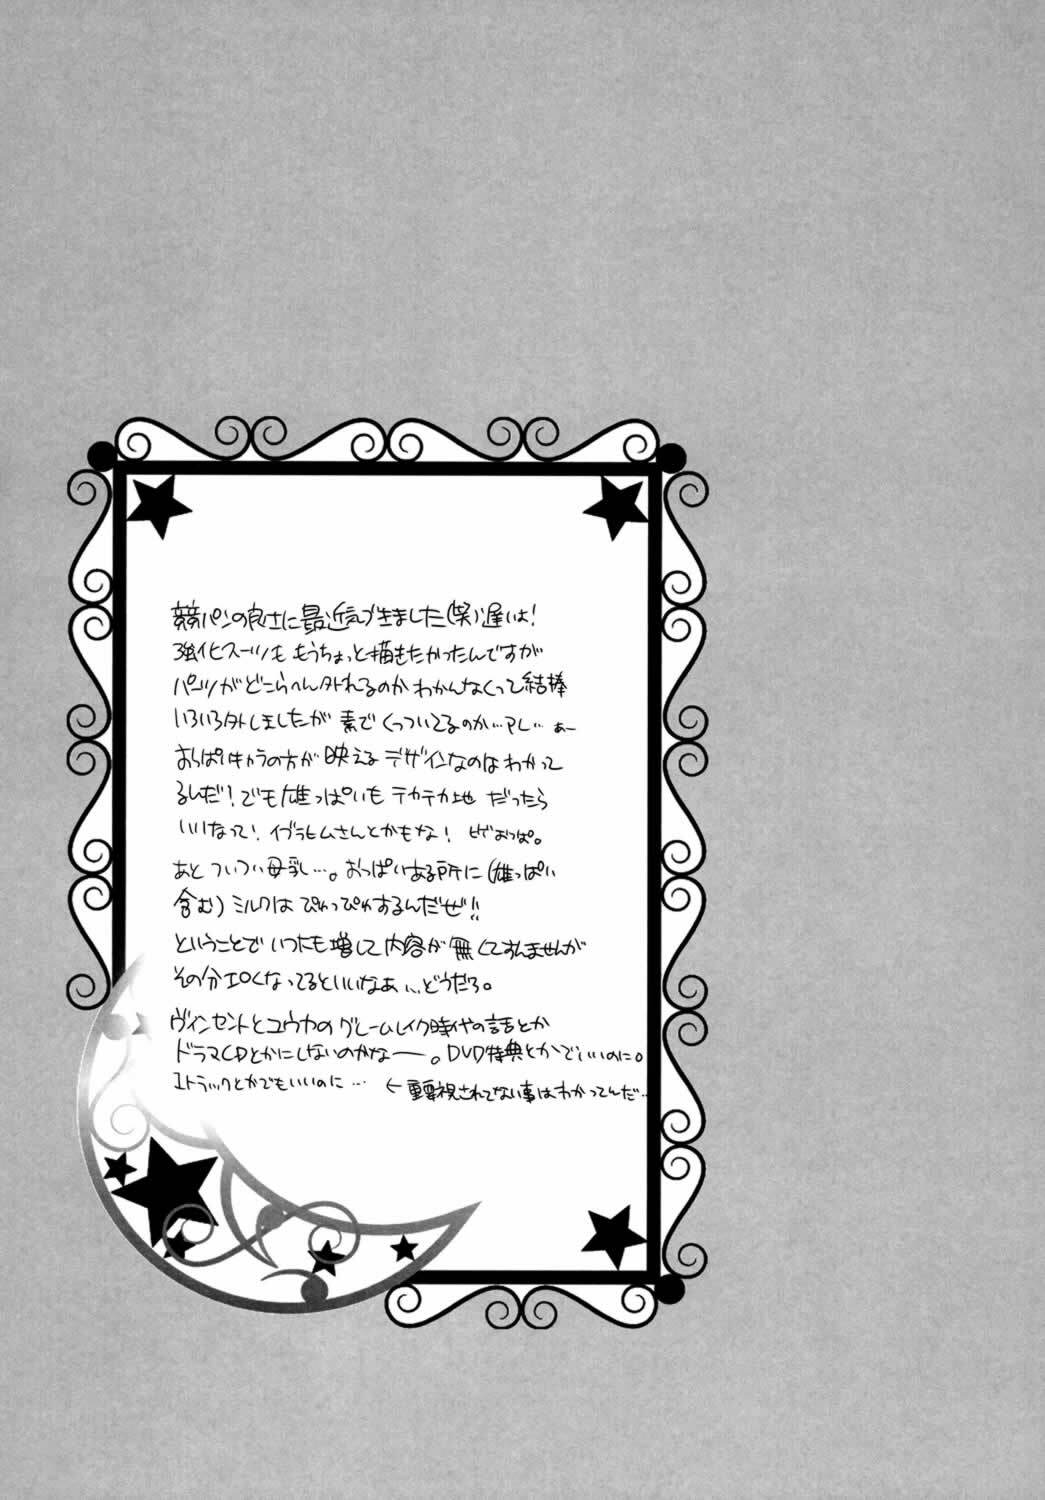 競パンの良さに最近気づきました(笑)遅いよ!
強化スーツも もうちょっと描きたかったんですが
パーツがどこらへん外れるのか わかんなくって結構
いろいろ外しましたが 素でくっついてるのか…アレ… ぁー
おっぱいキャラの方が 映えるデザインなのはわかって
るんだ!でも雄っぱいも テカテカ地 だったら
いいなって!イブラヒムさんとかもな! ビバおっぱ。
あと ついつい母乳…。おっぱいある所に(雄っぱい
含む)ミルクは ぴゅっぴゅするんだぜ!!
ということで いつにも増して内容が 無くてすんませんが
その分エロくなってるといいなぁ…どうだろ。
ヴィンセントとユウカの グレームレイク時代の話とか
ドラマCDとかにしないのかなー。DVD特典とかでいいのに。
1トラックとかでもいいのに… ←重要視されてない事はわかってんだ…